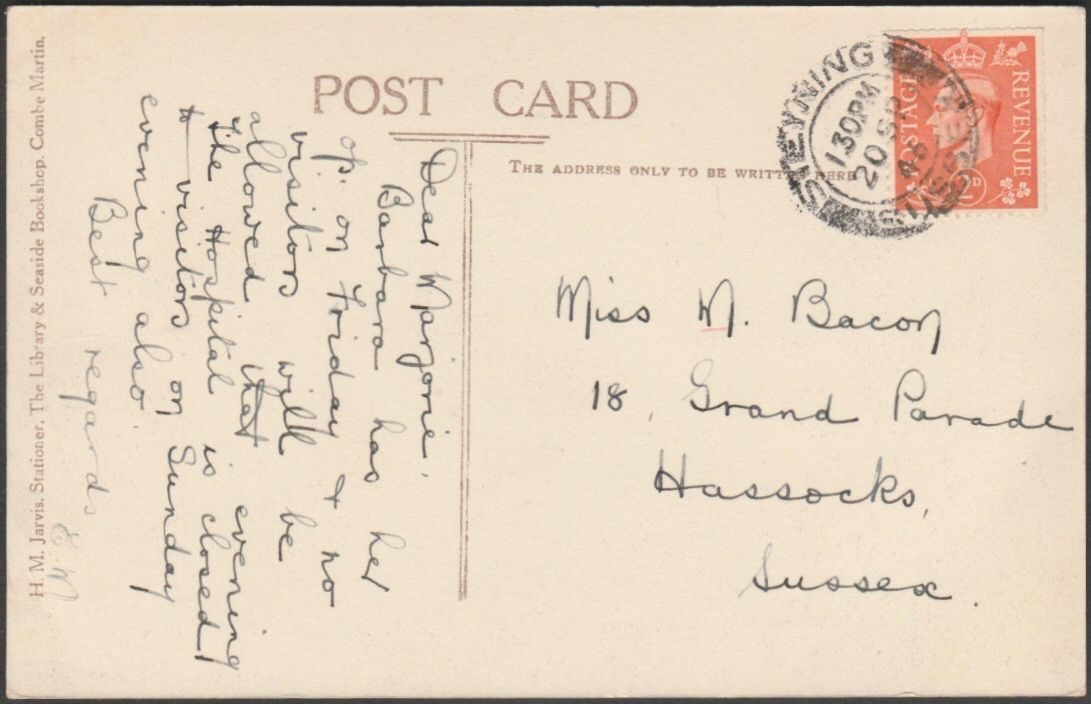 POST CARD
THE ADDRESS ONLY TO BE WRITTEN HERE
STEYNING
SUSSEX
130PM
20 SP
48
POSTAGE
REVENUE
2D
Dear Marjorie,
Barbara has her
op. on Friday & no
visitors will be
allowed that evening
The Hospital is closed
to visitors on Sunday
evening also.
Best regards
Miss M. Bacon
18, Grand Parade
Hassocks,
Sussex.
H. M. Jarvis, Stationer, The Library & Seaside Bookshop, Combe Martin.